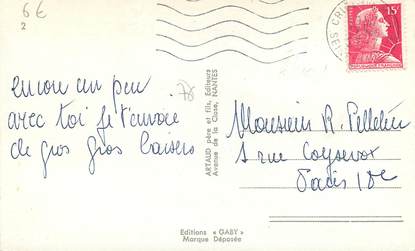 6€
2
encore un peu
avec toi je t'envoie
de gros gros baisers
78
ARTAUD père et fils, Editeurs
Avenue de la Close, NANTES
15F
REPUBLIQUE FRANÇAISE
Monsieur R. Pelletier
1 rue Coysevox
Paris 18e
Editions « GABY »
Marque Déposée